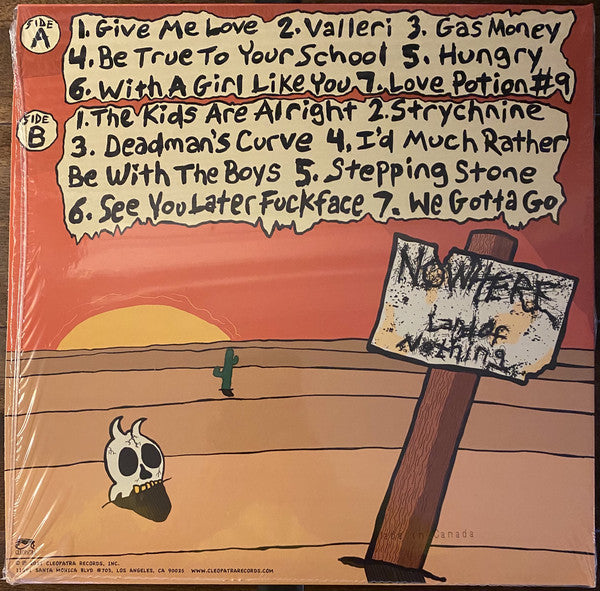 SIDE A
1. Give Me Love 2. Valleri 3. Gas Money
4. Be True To Your School 5. Hungry
6. With A Girl Like You 7. Love Potion #9
SIDE B
1. The Kids Are Alright 2. Strychnine
3. Deadman's Curve 4. I'd Much Rather
Be With The Boys 5. Stepping Stone
6. See You Later Fuckface 7. We Gotta Go
NOWHERE
Land of
Nothing
in Canada
CLEOPATRA RECORDS, INC.
SANTA MONICA BLVD #703, LOS ANGELES, CA 90025 WWW.CLEOPATRARECORDS.COM